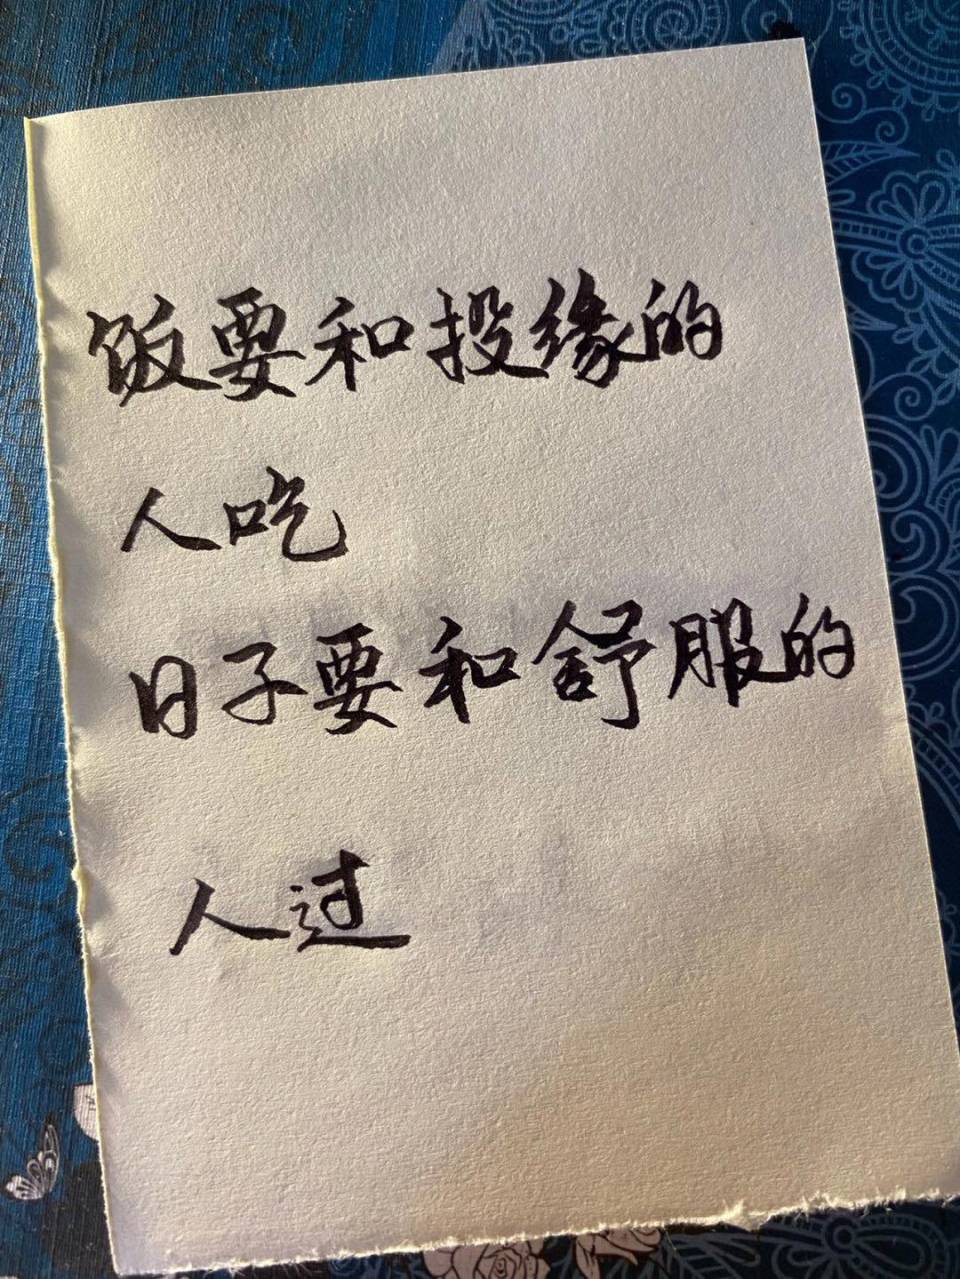 饭要和投缘的
人吃
日子要和舒服的
人过